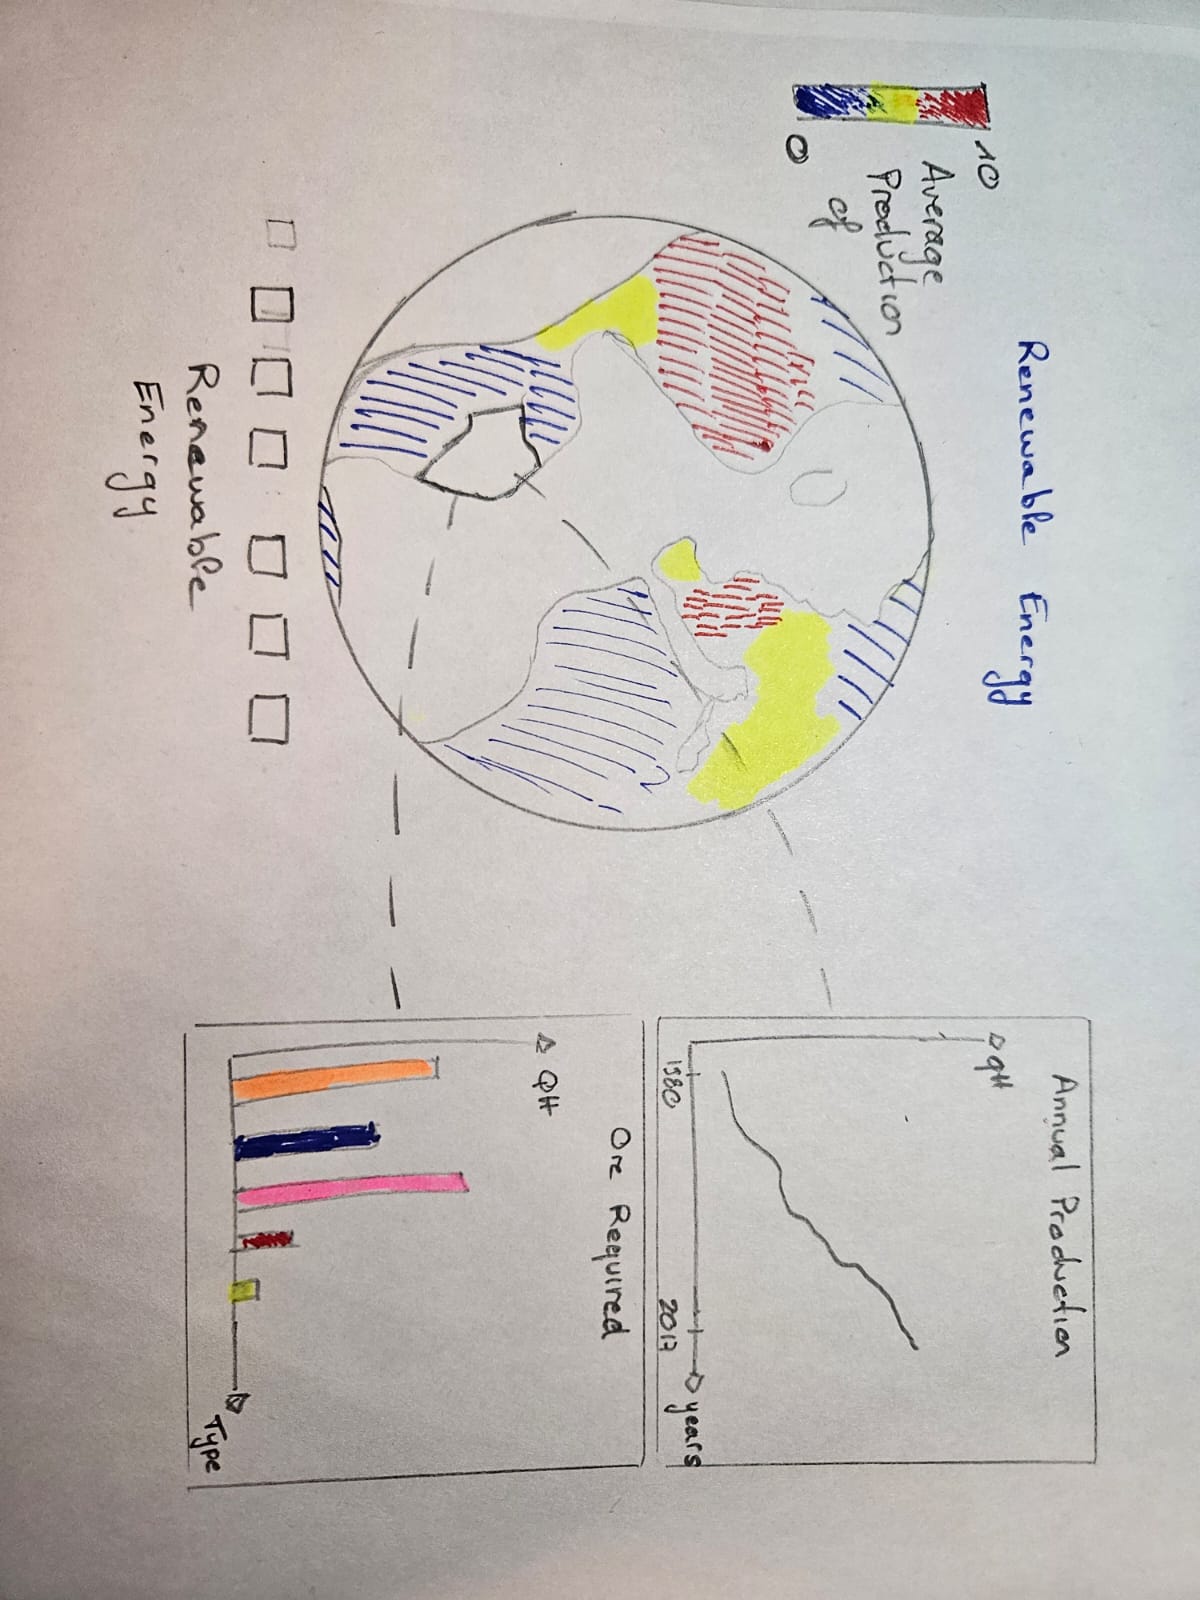 Renewable Energy
10
Average
Production
of
0
Renewable
Energy
Annual Production
qH
1980
2017
years
Ore Required
QH
Type